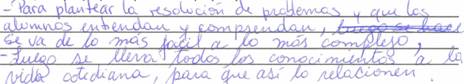 - Para plantear la resolución de problemas y que los
alumnos entiendan y comprendan, luego se hace
se va de lo más fácil a lo más complejo,
- Luego se lleva todos los conocimientos a la
vida cotidiana, para que así lo relacionen.